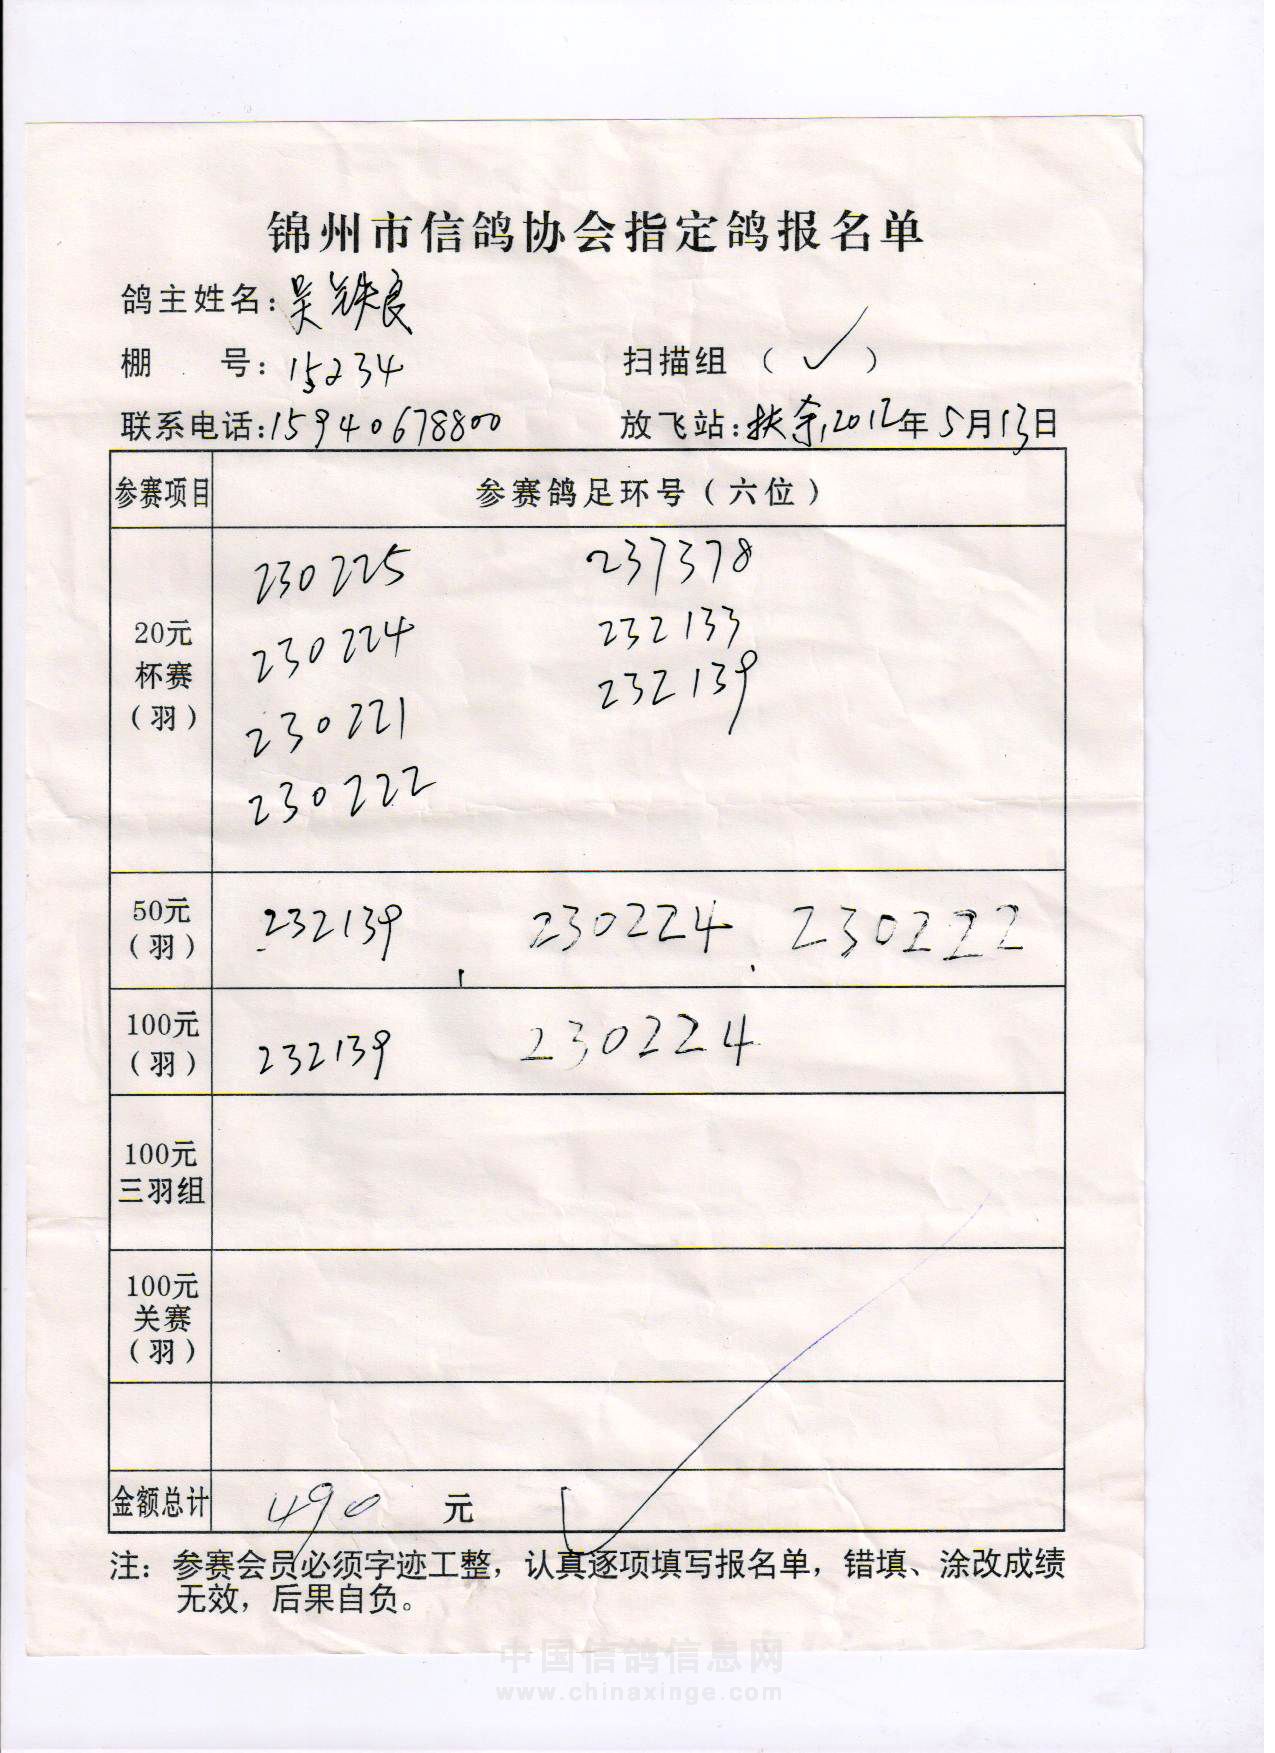 锦州市信鸽协会指定鸽报名单
鸽主姓名：吴铁良
棚 号：15234 扫描组（✓）
联系电话：15940678800 放飞站：扶余，2012年5月13日
参赛项目 参赛鸽足环号（六位）
20元
杯赛
（羽）
230225 237378
230224 232133
230221 232139
230222
50元
（羽）
232139 230224 230222
100元
（羽）
232139 230224
100元
三羽组
100元
关赛
（羽）
金额总计 490 元
注：参赛会员必须字迹工整，认真逐项填写报名单，错填、涂改成绩
无效，后果自负。
中国信鸽信息网
www.chinaxinge.com